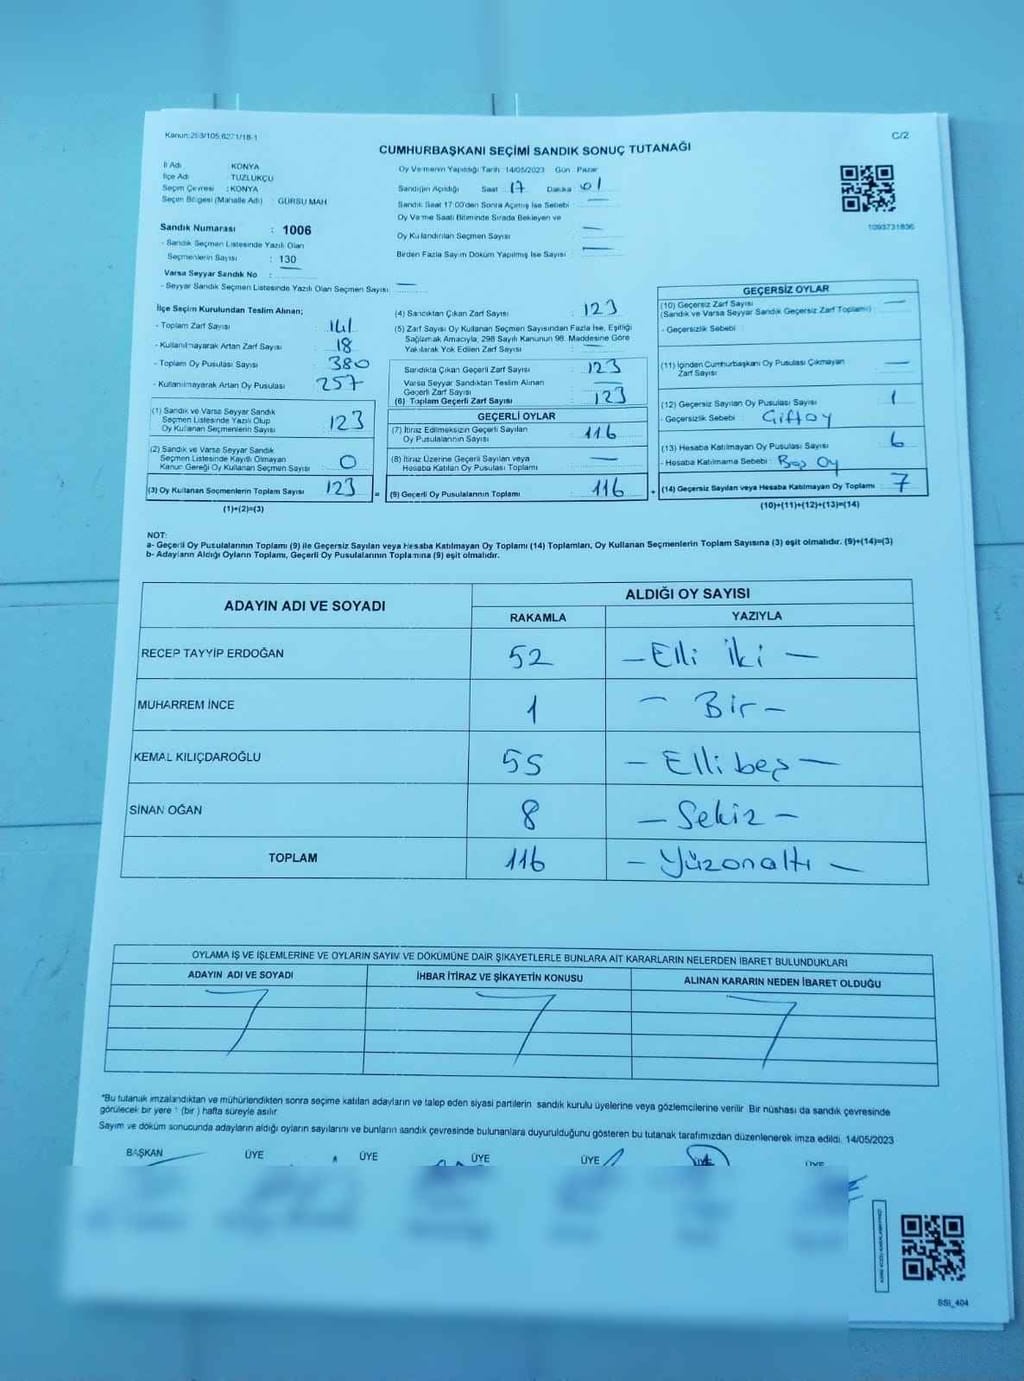 Kanun:298/105,6271/18-1
C/2
CUMHURBAŞKANI SEÇİMİ SANDIK SONUÇ TUTANAĞI
İl Adı KONYA
İlçe Adı TUZLUKÇU
Seçim Çevresi : KONYA
Seçim Bölgesi (Mahalle Adı) : GÜRSU MAH
Sandık Numarası : 1006
- Sandık Seçmen Listesinde Yazılı Olan
Seçmenlerin Sayısı : 130
Varsa Seyyar Sandık No : —
- Seyyar Sandık Seçmen Listesinde Yazılı Olan Seçmen Sayısı —
Oy Vermenin Yapıldığı Tarih 14/05/2023 Gün : Pazar
Sandığın Açıldığı Saat : 17 Dakika 01
Sandık Saat 17:00'den Sonra Açılmış İse Sebebi —
Oy Verme Saati Bitiminde Sırada Bekleyen ve
Oy Kullandırılan Seçmen Sayısı —
Birden Fazla Sayım Döküm Yapılmış İse Sayısı —
1093731836
İlçe Seçim Kurulundan Teslim Alınan;
- Toplam Zarf Sayısı : 141
- Kullanılmayarak Artan Zarf Sayısı : 18
- Toplam Oy Pusulası Sayısı : 380
- Kullanılmayarak Artan Oy Pusulası : 257
(1) Sandık ve Varsa Seyyar Sandık
Seçmen Listesinde Yazılı Olup
Oy Kullanan Seçmenlerin Sayısı 123
(2) Sandık ve Varsa Seyyar Sandık
Seçmen Listesinde Kayıtlı Olmayan
Kanun Gereği Oy Kullanan Seçmen Sayısı 0
(3) Oy Kullanan Seçmenlerin Toplam Sayısı 123
(1)+(2)=(3)
(4) Sandıktan Çıkan Zarf Sayısı : 123
(5) Zarf Sayısı Oy Kullanan Seçmen Sayısından Fazla İse, Eşitliği
Sağlamak Amacıyla, 298 Sayılı Kanunun 98. Maddesine Göre
Yakılarak Yok Edilen Zarf Sayısı —
Sandıkta Çıkan Geçerli Zarf Sayısı : 123
Varsa Seyyar Sandıktan Teslim Alınan
Geçerli Zarf Sayısı —
(6) Toplam Geçerli Zarf Sayısı : 123
GEÇERLİ OYLAR
(7) İtiraz Edilmeksizin Geçerli Sayılan
Oy Pusulalarının Sayısı 116
(8) İtiraz Üzerine Geçerli Sayılan veya
Hesaba Katılan Oy Pusulası Toplamı —
(9) Geçerli Oy Pusulalarının Toplamı : 116
GEÇERSİZ OYLAR
(10) Geçersiz Zarf Sayısı —
(Sandık ve Varsa Seyyar Sandık Geçersiz Zarf Toplamı)
- Geçersizlik Sebebi
(11) İçinden Cumhurbaşkanı Oy Pusulası Çıkmayan
Zarf Sayısı —
(12) Geçersiz Sayılan Oy Pusulası Sayısı : 1
- Geçersizlik Sebebi : Çift oy
(13) Hesaba Katılmayan Oy Pusulası Sayısı : 6
- Hesaba Katılmama Sebebi : Boş Oy
(14) Geçersiz Sayılan veya Hesaba Katılmayan Oy Toplamı : 7
(10)+(11)+(12)+(13)=(14)
NOT:
a- Geçerli Oy Pusulalarının Toplamı (9) ile Geçersiz Sayılan veya Hesaba Katılmayan Oy Toplamı (14) Toplamları, Oy Kullanan Seçmenlerin Toplam Sayısına (3) eşit olmalıdır. (9)+(14)=(3)
b- Adayların Aldığı Oyların Toplamı, Geçerli Oy Pusulalarının Toplamına (9) eşit olmalıdır.
ADAYIN ADI VE SOYADI ALDIĞI OY SAYISI
RAKAMLA YAZIYLA
RECEP TAYYİP ERDOĞAN 52 — Elli İki —
MUHARREM İNCE 1 — Bir —
KEMAL KILIÇDAROĞLU 55 — Elli beş —
SİNAN OĞAN 8 — Sekiz —
TOPLAM 116 — Yüzonaltı —
OYLAMA İŞ VE İŞLEMLERİNE VE OYLARIN SAYIV VE DÖKÜMÜNE DAİR ŞİKAYETLERLE BUNLARA AİT KARARLARIN NELERDEN İBARET BULUNDUKLARI
ADAYIN ADI VE SOYADI İHBAR İTİRAZ VE ŞİKAYETİN KONUSU ALINAN KARARIN NEDEN İBARET OLDUĞU
*Bu tutanak imzalandıktan ve mühürlendikten sonra seçime katılan adayların ve talep eden siyasi partilerin sandık kurulu üyelerine veya gözlemcilerine verilir Bir nüshası da sandık çevresinde
görülecek bir yere 1 (bir ) hafta süreyle asılır
Sayım ve döküm sonucunda adayların aldığı oyların sayılarını ve bunların sandık çevresinde bulunanlara duyurulduğunu gösteren bu tutanak tarafımızdan düzenlenerek imza edildi. 14/05/2023
BAŞKAN ÜYE ÜYE ÜYE ÜYE ÜYE ÜYE
BSI_404